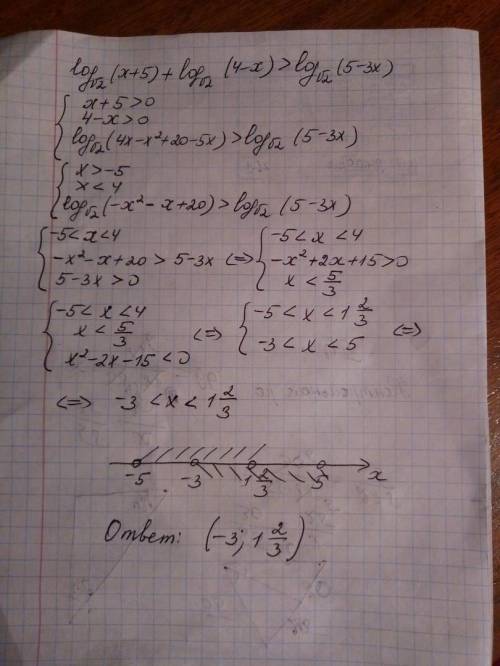 log√2 (x+5) + log√2 (4-x) > log√2 (5-3x)
{ x+5>0
4-x>0
log√2 (4x-x²+20-5x) > log√2 (5-3x)
{ x>-5
x<4
log√2 (-x²-x+20) > log√2 (5-3x)
{ -5<x<4
-x²-x+20 > 5-3x
5-3x>0
<=> { -5<x<4
-x²+2x+15>0
x < 5/3
{ -5<x<4
x < 5/3
x²-2x-15<0
<=> { -5<x<1 2/3
-3<x<5
<=>
<=> -3<x<1 2/3
-5 -3 1 2/3 5 x
Ответ: (-3; 1 2/3)